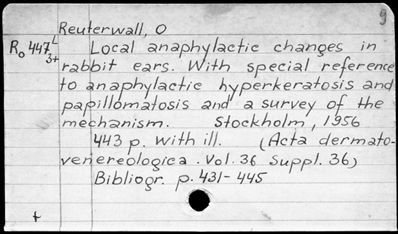 Reuterwall, O
Ro 447 L 3+
Local anaphylactic changes in
rabbit ears. With special reference
to anaphylactic hyperkeratosis and
papillomatosis and a survey of the
mechanism. Stockholm, 1956
443 p. with ill. (Acta dermato-
venereologica. Vol. 36 Suppl. 36)
Bibliogr. p. 431-445